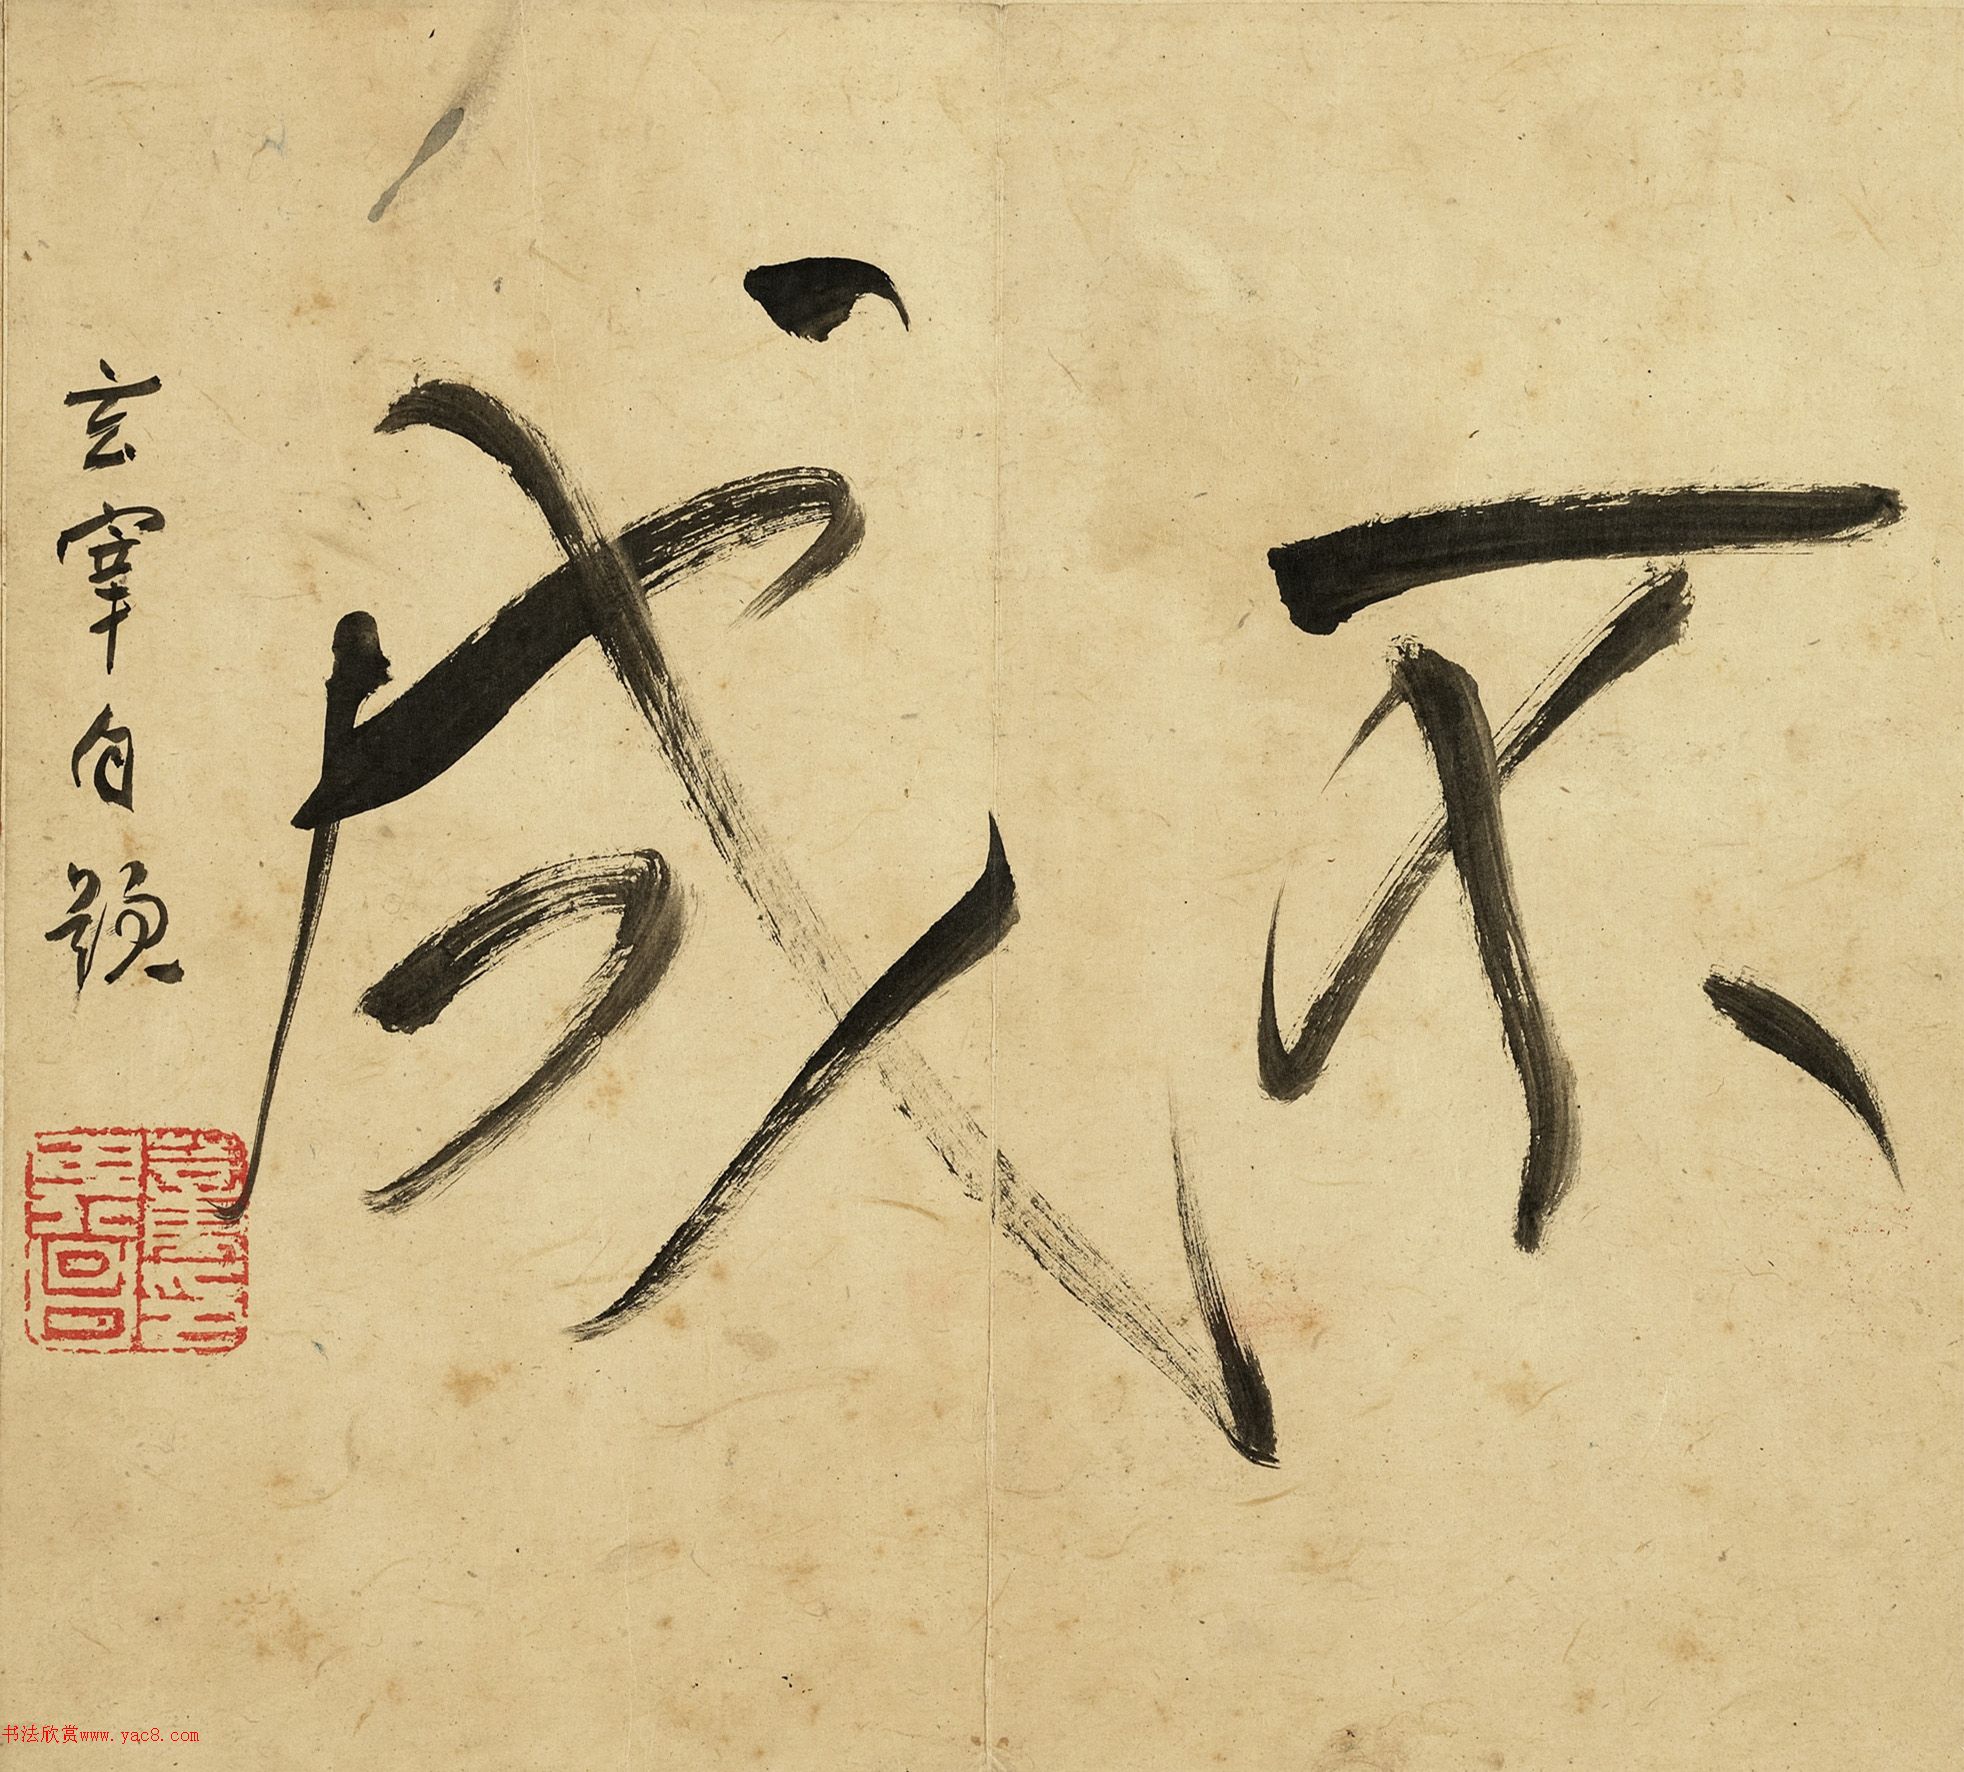 不成
玄宰自題
书法欣赏www.yac8.com